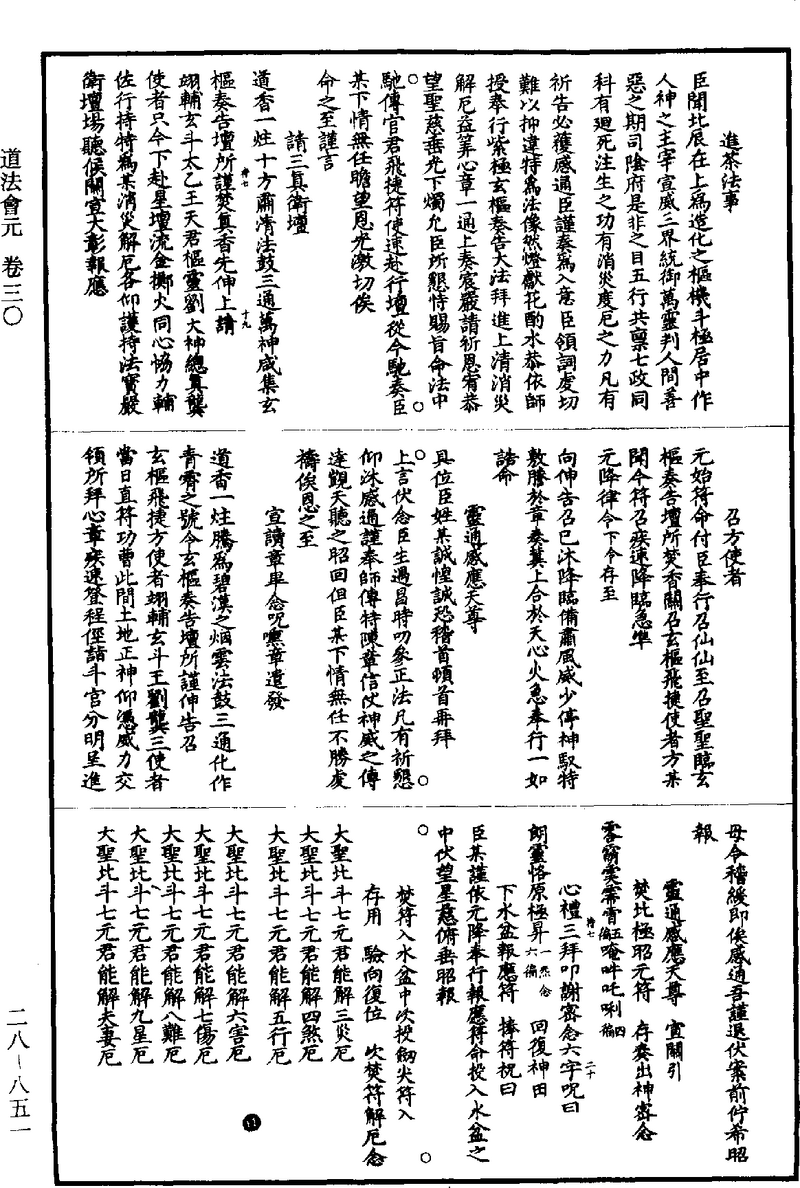 進茶法事
臣聞北辰在上為造化之樞機斗極居中作
人神之主宰宣威三界統御萬靈判人間善
惡之期司陰府是非之目五行共稟七政同
科有廻死注生之功有消災度厄之力凡有
祈告必獲感通臣謹奏為入意臣領詞虔切
難以抑違特為法像然燈獻花酌水恭依師
授奉行紫極玄樞奏告大法拜進上清消災
解厄益筭心章一通上奏宸嚴請祈恩宥恭
望聖慈垂光下燭允臣所懇恃賜旨命法中
馳傳官君飛捷符使速赴行壇從今馳奏臣
某下情無任瞻望恩光激切俟
命之至謹言
請三真衛壇
道香一炷十方肅清法鼓三通萬神咸集玄
樞奏告壇所謹焚真香先伸上請
翊輔玄斗太乙王天君樞靈劉大神總真龔
使者只今下赴星壇流金擲火同心恊力輔
佐行持特為某消災解厄各仰護持法寶嚴
衛壇場聽候關宣大彰報應
召方使者
元始符命付臣奉行召仙仙至召聖聖臨玄
樞奏告壇所焚香關召玄樞飛捷使者方某
聞今符召疾速降臨急準
元降律令下令存至
向伸告召已沐降臨備肅風威少停神馭特
敷騰於章奏冀上合於天心火急奉行一如
誥命
靈通感應天尊
具位臣姓某誠惶誠恐稽首頓首再拜
上言伏念臣生遇昌時叨參正法凡有祈懇
仰沐感通謹奉師傳特陳章信仗神威之傳
達觀天聽之昭回但臣某下情無任不勝虔
禱俟恩之至
宣讀章畢念呪噀章遣發
道香一炷騰為碧漢之烟雲法鼓三通化作
青霄之號令玄樞奏告壇所謹伸告召
玄樞飛捷方使者翊輔玄斗王劉龔三使者
當日直符功曹此間土地正神仰憑威力交
領所拜心章疾速登程徑詣斗宮分明呈進
毋令稽緩即俟感通吾謹退伏案前佇希昭
報
靈通感應天尊 宣關引
焚北極昭元符 存奏出神密念
唵吽吒唎
心禮三拜叩謝密念六字呪曰
朗靈恪原極昇 回復神田
下水盆報應符 捧符祝曰
臣某謹依元降奉行報應符命投入水盆之
中伏望星慈俯垂昭報
焚符入水盆中次投劒尖符入
存用 驗向復位 次焚符解厄念
大聖北斗七元君能解三災厄
大聖北斗七元君能解四煞厄
大聖北斗七元君能解五行厄
大聖北斗七元君能解六害厄
大聖北斗七元君能解七傷厄
大聖北斗七元君能解八難厄
大聖北斗七元君能解九星厄
大聖北斗七元君能解夫妻厄
道法會元 卷三〇
二八－八五一